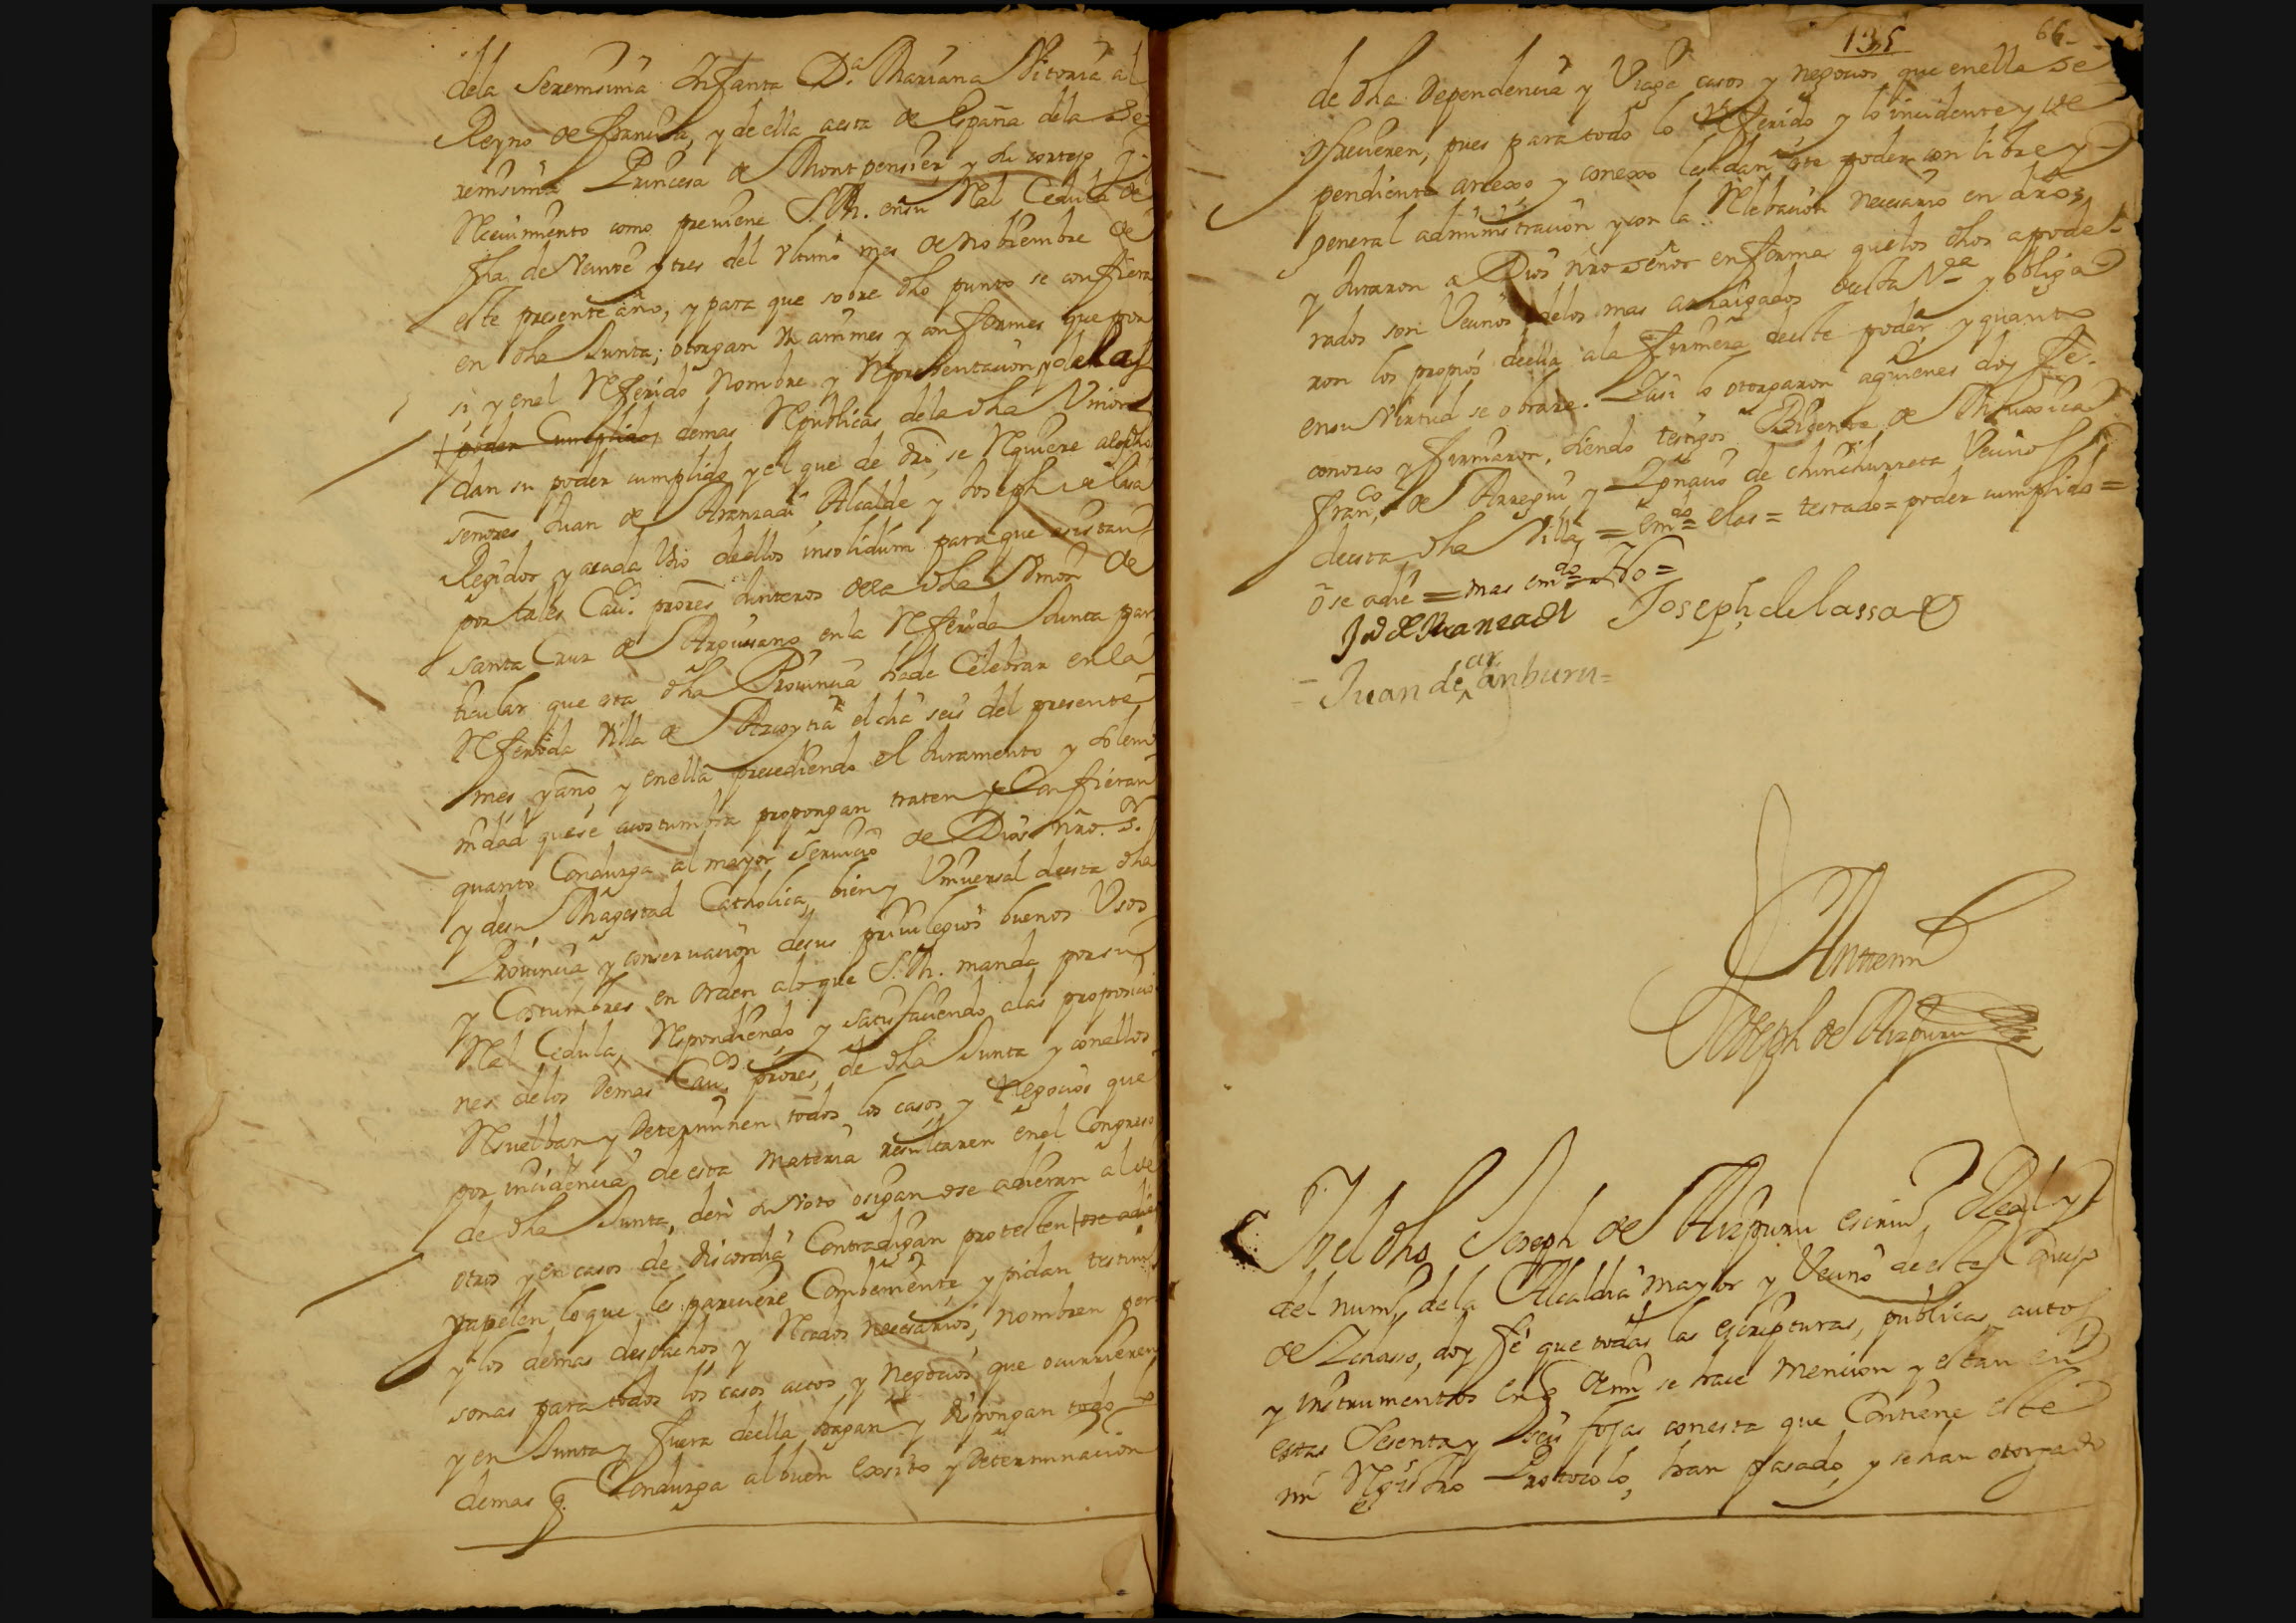 dela Serenisima Infanta D.ª Mariana Vitoria al
Reyno de francia, y de ella aesta de España dela Se
renisima Princesa de Montpensier, y su cortejo
Recivimiento como previene S.M. ensu Real Cedula de
fha de Veinte y tres del ultimo mes de Nobiembre de
este presente año, y para que sobre dho punto se confiera
en dha Junta; otorgan unanimes y conformes que por
si y enel Referido Nombre y Representacion, y de las
poder Cumplido demas Republicas dela dha Union
dan su poder cumplido y el que de dro se Requiere alos dhos
señores Juan de Aranzadi Alcalde y Joseph de lasa
Regidor y acada Uno deellos insolidum para que asistan
por tales Cau.os prores Junteros dela dha Union de
Santa Cruz de Arguisano enla Referida Junta par
ticular que esta dha Provincia hade Celebrar en la
Referida Villa de Azcoytia el dia seis del presente
mes y año y enella precediendo el Juramento y solem
nidad quese acostumbra propongan traten y Confieran
quanto Conduzga al mayor Servicio de Dios nro. S.r
y desu Magestad Catholica, bien y Universal deesta dha
Provincia y conservacion desus privilegios buenos Usos
y Costumbres en orden alo que S.M. manda porsu
Real Cedula, Respondiendo y satisfaciendo alas proposicio
nes delos demas Cau.os prores, de dha Junta y conellos
Resuelban y Determinen todos los casos y Negocios que
por incidencia de esta materia resultaren enel Congreso
de dha Junta, den su Voto osigan ose adieran al de
otros y en casos de discordia Contradigan protesten ose adie
yapelen loque les pareciere Combeniente, y pidan testim.os
y los demas despachos y Recados necesarios, nombren per
sonas para todos los casos actos y negocios que ocurrieren
y en Junta y fuera deella hagan y dispongan todo lo
demas q. Conduzga albuen exsito y Determinacion
135
66
de dha Dependencia y Viage casos y negocios que enella se
ofrecieren, pues para todo lo Referido y lo incidente y de
pendiente anexo y conexo les dan este poder con libre y
general administracion y con la Relebacion necesario en dro;
y Juraron a Dios nro señor en forma quelos dhos apode
rados son Vecinos delos mas arraigados deesta V.a y obliga
ron los propios deella ala firmeza deeste poder, y quanto
ensu Virtud se obrare. Y asi lo otorgaron aquienes doy fe
conozco y firmaron, siendo testigos Bicente de Mugica
fran.co de Arregui y Ignacio de chinchurreta Vecinos
deesta dha Villa = em.do = elas = testado = poder cumplido =
ose adie = mas em.do = Ho =
Ju.o de Aranzadi Joseph de lassa
Juan de ar anburu =
Antemi
Joseph de Aizpuru
Yo el dho Joseph de Aizpuru escriv.o Real y
del num.o dela Alcaldia mayor y Vecino de este Concejo
de Ichasso, doy fe que todas las escripturas, publicas, autos
y instrumentos en q. Demi se hace mencion y estan en
estas Sesenta y seis fojas conesta que Contiene este
mi Registro Protocolo, han pasado, y se han otorgado